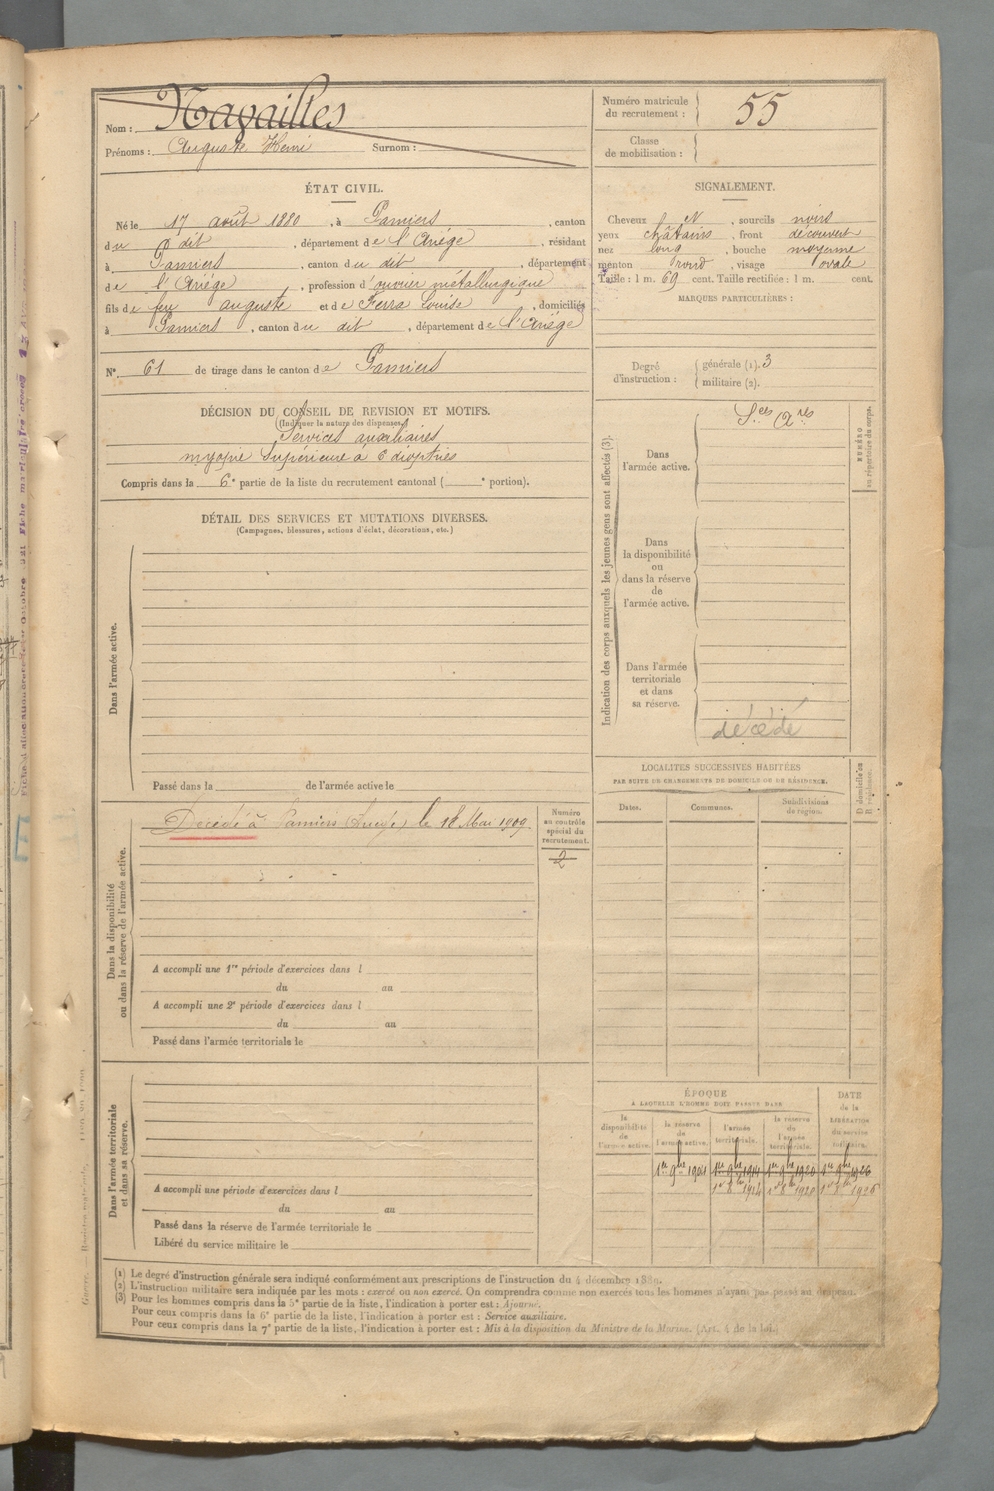 Nom : Navailles
Prénoms : Auguste Henri Surnom :
Numéro matricule du recrutement : 55
Classe de mobilisation :
ÉTAT CIVIL.
Né le 17 août 1880, à Pamiers, canton
du dit, département de l'Ariége, résidant
à Pamiers, canton du dit, département
de l'Ariége, profession d'ouvrier métallurgique
fils de feu auguste et de Ferra Louise, domiciliés
à Pamiers, canton du dit, département de l'Ariége
N° 61 de tirage dans le canton de Pamiers
SIGNALEMENT.
Cheveux N, sourcils noirs
yeux châtains, front découvert
nez long, bouche moyenne
menton rond, visage ovale
Taille : 1 m. 69 cent. Taille rectifiée : 1 m. cent.
MARQUES PARTICULIÈRES :
Degré d'instruction :
générale (1). 3
militaire (2).
DÉCISION DU CONSEIL DE REVISION ET MOTIFS.
(Indiquer la nature des dispenses)
Services auxiliaires
myopie Supérieure à 6 dioptries
Compris dans la 6e partie de la liste du recrutement cantonal ( e portion).
DÉTAIL DES SERVICES ET MUTATIONS DIVERSES.
(Campagnes, blessures, actions d'éclat, décorations, etc.)
Dans l'armée active.
Passé dans la de l'armée active le
Indication des corps auxquels les jeunes gens sont affectés (3).
NUMÉRO au répertoire du corps.
Dans l'armée active.
Ses Ares
Dans la disponibilité ou dans la réserve de l'armée active.
Dans l'armée territoriale et dans sa réserve.
décédé
LOCALITÉS SUCCESSIVES HABITÉES
PAR SUITE DE CHANGEMENTS DE DOMICILE OU DE RÉSIDENCE.
Dates. Communes. Subdivisions de région.
D domicile ou R résidence.
Ou dans la disponibilité ou dans la réserve de l'armée active.
Décédé à Pamiers (Ariège) le 18 Mai 1909
Numéro au contrôle spécial du recrutement.
2
A accompli une 1re période d'exercices dans l
du au
A accompli une 2e période d'exercices dans l
du au
Passé dans l'armée territoriale le
Dans l'armée territoriale et dans sa réserve.
A accompli une période d'exercices dans l
du au
Passé dans la réserve de l'armée territoriale le
Libéré du service militaire le
ÉPOQUE
À LAQUELLE L'HOMME DOIT PASSER DANS
la disponibilité de l'armée active.
la réserve de l'armée active.
l'armée territoriale.
la réserve de l'armée territoriale.
DATE de la LIBÉRATION du service militaire.
1er 9bre 1904 1er 9bre 1914 1er 9bre 1920 1er 9bre 1926
1er 8bre 1914 1er 8bre 1920 1er 8bre 1926
(1) Le degré d'instruction générale sera indiqué conformément aux prescriptions de l'instruction du 4 décembre 1889.
(2) L'instruction militaire sera indiquée par les mots : exercé ou non exercé. On comprendra comme non exercés tous les hommes n'ayant pas passé au drapeau.
(3) Pour les hommes compris dans la 5e partie de la liste, l'indication à porter est : Ajourné.
Pour ceux compris dans la 6e partie de la liste, l'indication à porter est : Service auxiliaire.
Pour ceux compris dans la 7e partie de la liste, l'indication à porter est : Mis à la disposition du Ministre de la Marine. (Art. 4 de la loi.)